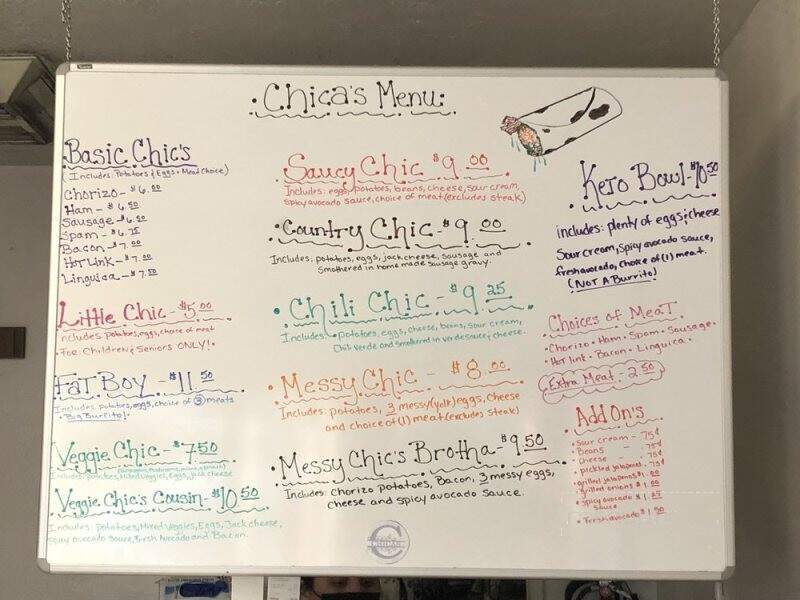 Chica's Menu:
Basic Chic's
(Includes: Potatoes & Eggs + Meat Choice)
Chorizo - $6.50
Ham - $6.50
Sausage - $6.50
Spam - $6.75
Bacon - $7.00
Hot Link - $7.00
Linguica - $7.50
Little Chic - $5.00
Includes: Potatoes, eggs, choice of meat
• For: Children & Seniors ONLY! •
Fat Boy - $11.50
Includes: potatoes, eggs, choice of 3 meats
• Big Burrito! •
Veggie Chic - $7.50
Includes: potatoes, Mixed Veggies, Eggs, jack cheese
Veggie Chic's Cousin - $10.50
Includes: Potatoes, Mixed Veggies, Eggs, Jack cheese,
spicy avocado sauce, Fresh Avocado and Bacon.
Saucy Chic $9.00
Includes: eggs, potatoes, beans, cheese, sour cream,
spicy avocado sauce, choice of meat (excludes steak)
• Country Chic - $9.00
Includes: potatoes, eggs, jack cheese, sausage and
smothered in home made sausage gravy.
• Chili Chic - $9.25
Includes: potatoes, eggs, cheese, beans, sour cream,
Chili Verde and smothered in verde sauce & cheese.
• Messy Chic - $8.00
Includes: potatoes, 3 messy (yolk) eggs, cheese
and choice of (1) meat (excludes steak)
• Messy Chic's Brotha - $9.50
Includes: Chorizo potatoes, Bacon, 3 messy eggs,
cheese and spicy avocado sauce.
Keto Bowl - $10.50
includes: plenty of eggs & cheese
Sour cream, spicy avocado sauce,
fresh avocado, choice of (1) meat.
(NOT A Burrito)
Choices of Meat
• Chorizo • Ham • Spam • Sausage •
• Hot link • Bacon • Linguica •
Extra Meat - 2.50
Add On's
• Sour cream - .75¢
• Beans - .75¢
• Cheese - .75¢
• pickled jalapenos - .75¢
• grilled jalapenos $1.00
• grilled onions $1.00
• spicy avocado sauce $1.25
• Fresh avocado $1.50
CHICAS